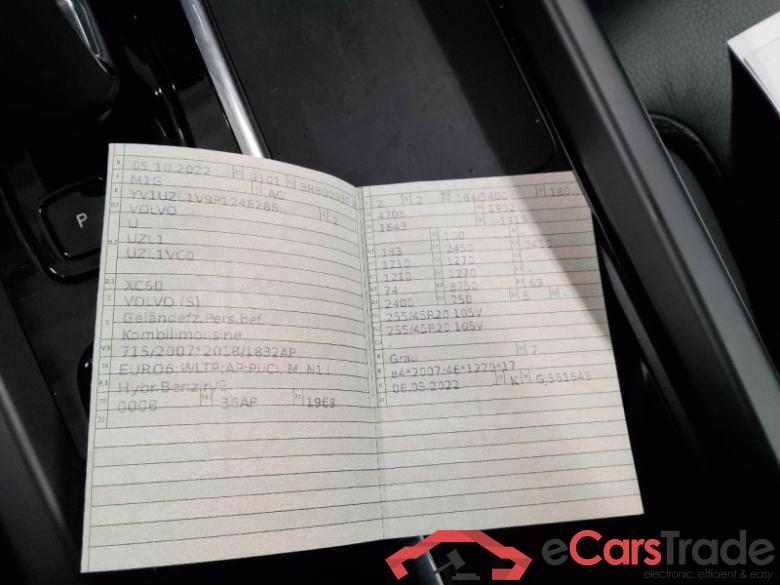 B 05.10.2022 9101
J M1G AC
E YV1UZL1V9P1246286 2
D.1 VOLVO
U
D.2 UZL1
UZL1VC0
D.3 XC60
2 VOLVO (S)
5 Geländefz.Pers.bef.
Kombilimousine
V.9 715/2007*2018/1832AP
14 EURO6;WLTP;AP;PI/CI, M, N1 I
P.3 Hybr.Benzin/E
10 0008 14.1 36AP P.1 1969
22
2 2 184/5400 180
4708 1902
1643 -1915
100
183 2450 2450
1210 1270
1210 1270 -
74 3750 63
2400 750 5 -
255/45R20 105V
255/45R20 105V
R Grau 7
K e4*2007/46*1220*17
6 06.05.2022 17 K 16 GJ561643
21
P
eCarsTrade
electronic, efficient & easy